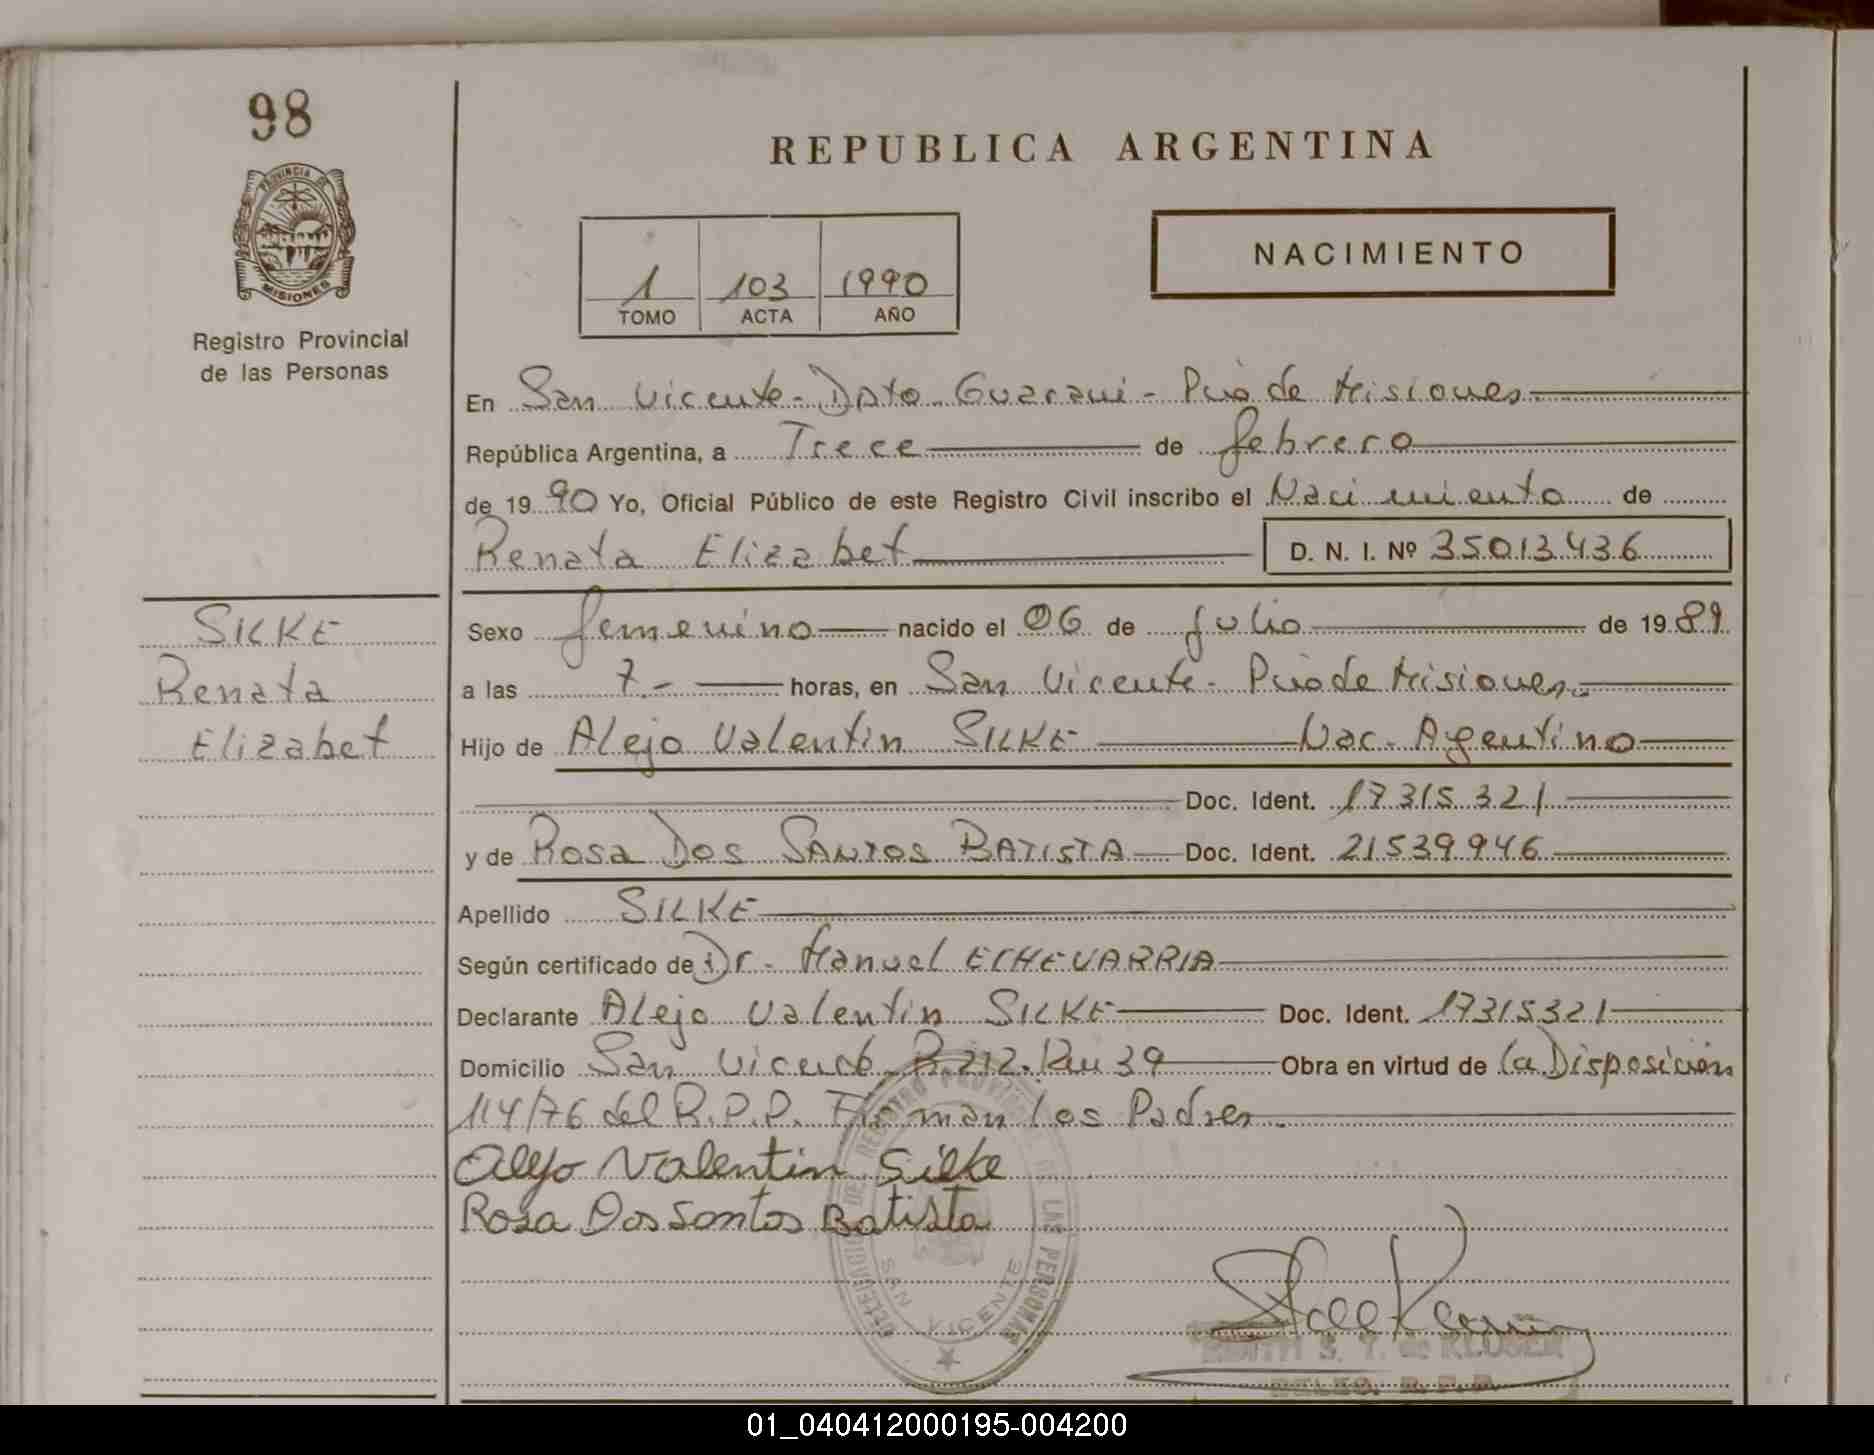 98
PROVINCIA DE
MISIONES
Registro Provincial
de las Personas
REPUBLICA ARGENTINA
NACIMIENTO
1 103 1990
TOMO ACTA AÑO
En San Vicente - Dpto Guarani - Pcia de Misiones
República Argentina, a Trece de febrero
de 1990 Yo, Oficial Público de este Registro Civil inscribo el Nacimiento de
Renata Elizabet D. N. I. Nº 35013436
SILKE
Renata
Elizabet
Sexo femenino nacido el 06 de julio de 1989
a las 7.- horas, en San Vicente - Pcia de Misiones.
Hijo de Alejo Valentin SILKE Nac. Argentino
Doc. Ident. 17315321
y de Rosa Dos SANTOS BATISTA Doc. Ident. 21539946
Apellido SILKE
Según certificado de Dr. Manuel ECHEVARRIA
Declarante Alejo Valentin SILKE Doc. Ident. 17315321
Domicilio San Vicente R. 212. Km 39 Obra en virtud de la Disposición
114/76 del R.P.P. Firman los Padres.
Alejo Valentin Silke
Rosa Dos Santos Batista
SAN VICENTE
EDITH S. T. de KLUSER
DELEG. R. P. P.
01_040412000195-004200